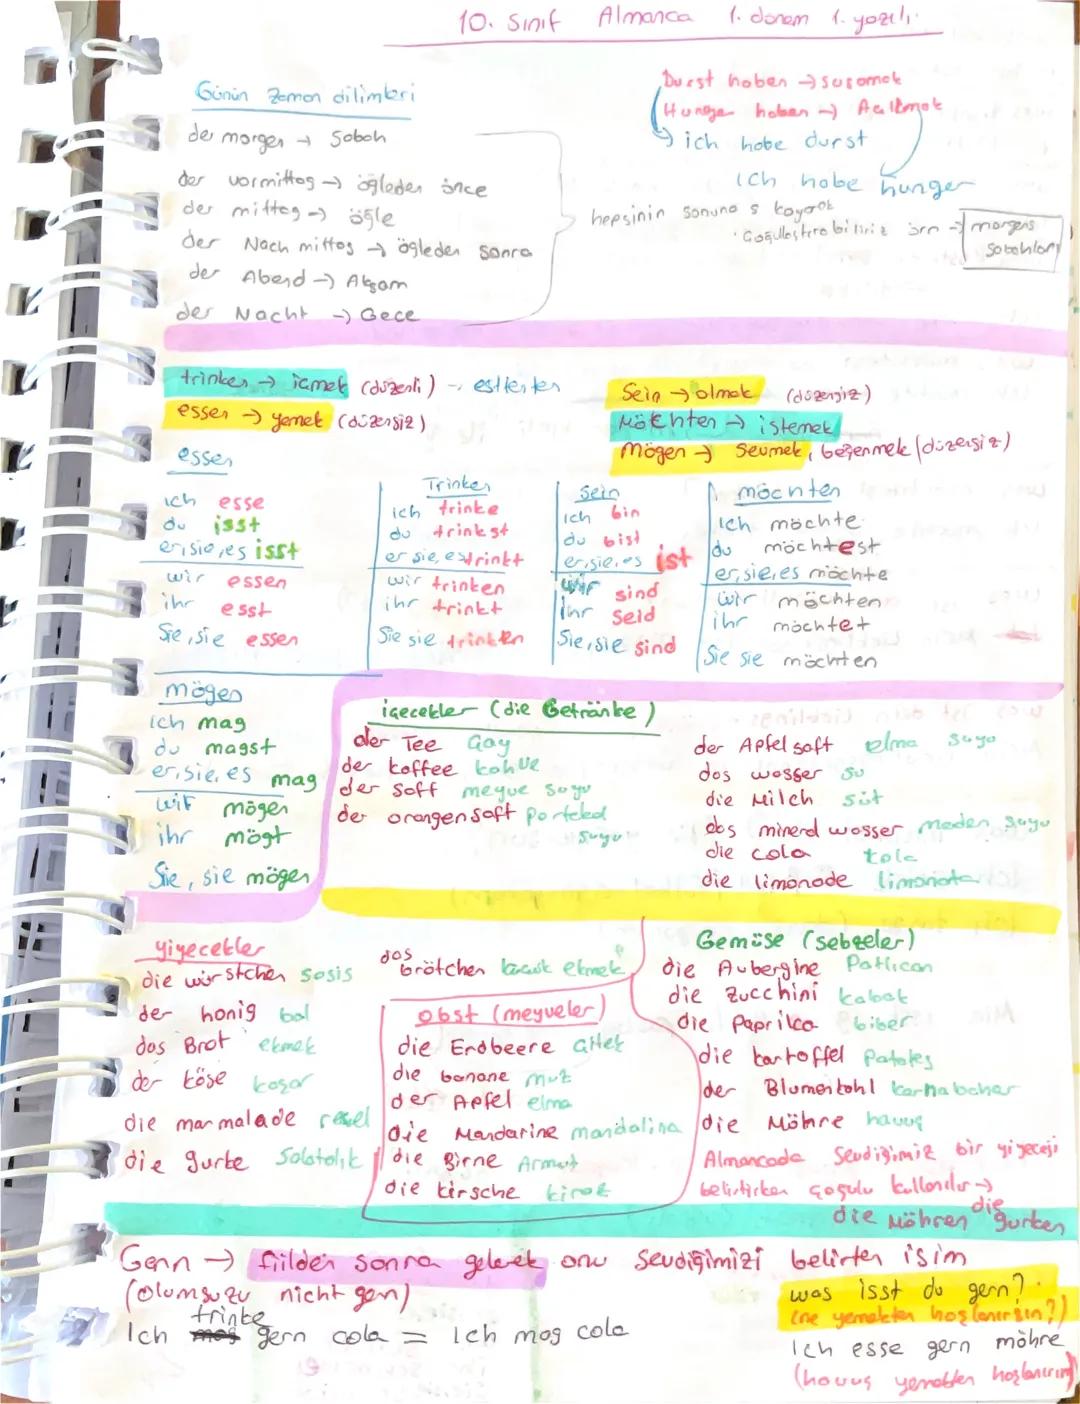 10. Sınıf Almanca 1. dönem 1. yazılı
Günün zaman dilimleri
der morgen → Sabah
der vormittag → öğleden önce
der mittag → öğle
der Nach mittag → öğleden sonra
der Abend → Akşam
der Nacht → Gece
Durst haben → susamak
Hunger haben → Acıkmak
ich habe durst
ich habe hunger
hepsinin sonuna s koyarak
çoğullaştırabiliriz örn → morgens
sabahları
trinken → içmek (düzenli)
essen → yemek (düzensiz)
Sein → olmak (düzensiz)
Möchten → istemek
Mögen → Sevmek, beğenmek (düzensiz)
essen
ich esse
du isst
er,sie,es isst
wir essen
ihr esst
Sie,sie essen
Trinken
ich trinke
du trinkst
er sie,es trinkt
wir trinken
ihr trinkt
Sie sie trinken
Sein
ich bin
du bist
er,sie,es ist
wir sind
ihr Seid
Sie,sie sind
möchten
ich möchte
du möchtest
er,sie,es möchte
wir möchten
ihr möchtet
Sie sie möchten
mögen
ich mag
du magst
er,sie,es mag
wir mögen
ihr mögt
Sie, sie mögen
içecekler (die Getränke)
der Tee çay
der koffee kahve
der Saft meyve suyu
der orangensaft Portakal
suyu
der Apfelsaft elma suyu
das wasser su
die Milch süt
das mineral wasser maden suyu
die cola kola
die limonade limonata
yiyecekler
die würstchen sosis
der honig bal
das Brot ekmek
der köse kaşar
die marmalade reçel
die gurke Salatalık
das brötchen küçük ekmek
obst (meyveler)
die Erdbeere çilek
die banane muz
der Apfel elma
die Mandarine mandalina
die Birne Armut
die kirsche kiraz
Gemüse (sebzeler)
die Aubergine Patlıcan
die Zucchini kabak
die Paprika biber
die kartoffel Patates
der Blumenkohl karnabahar
die Möhre havuç
Almancada Sevdiğimiz bir yiyeceği
belirtirken çoğulu kullanılır →
die Möhren die gurken
Genn → fiilden sonra gelerek onu sevdiğimizi belirten isim
(olumsuzu nicht gern)
Ich trinke gern cola = Ich mag cola
was isst du gern?
(ne yemekten hoşlanırsın?)
Ich esse gern möhre
(havuç yemekten hoşlanırım)